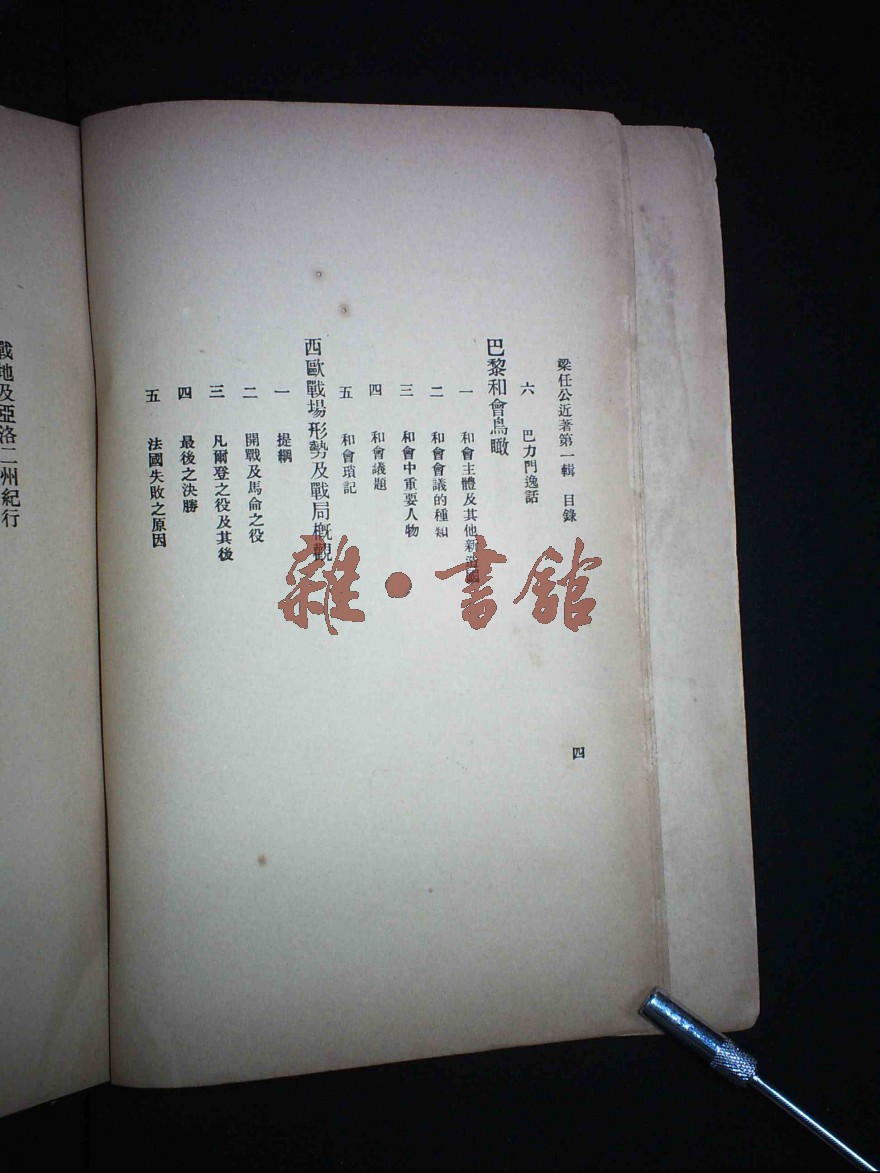 梁任公近著第一輯 目錄
四
六 巴力門逸話
巴黎和會鳥瞰
一 和會主體及其他新造國
二 和會會議的種類
三 和會中重要人物
四 和會議題
五 和會瑣記
西歐戰場形勢及戰局概觀
一 提綱
二 開戰及馬侖之役
三 凡爾登之役及其後
四 最後之決勝
五 法國失敗之原因
戰地及亞洛二州紀行
雜·書館